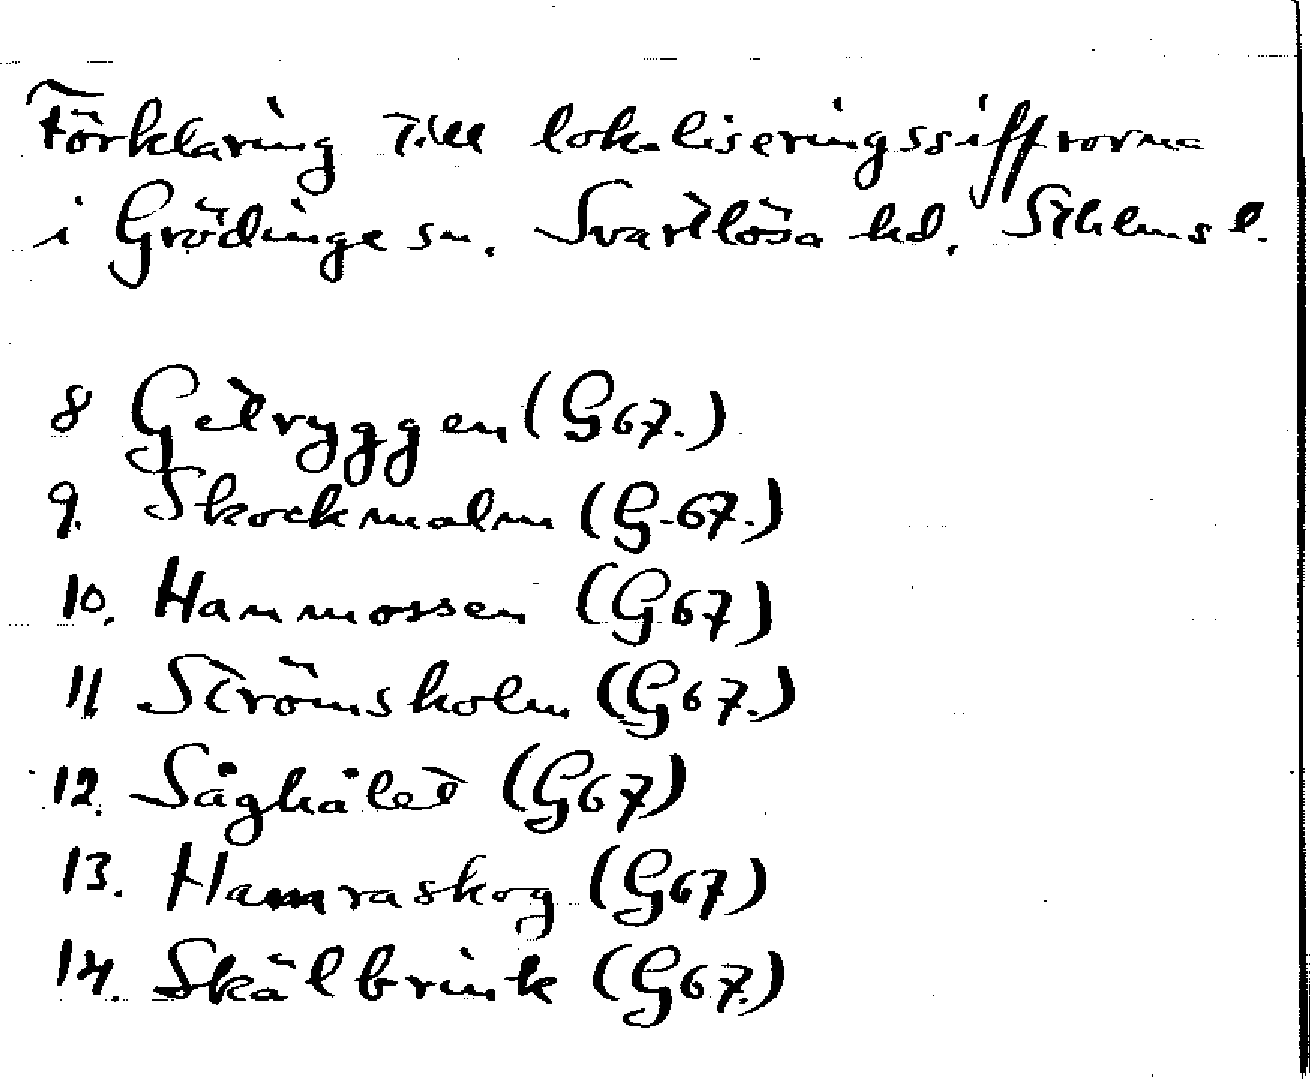 Förklaring till lokaliseringssiffrorna
i Grödinge sn. Svartlösa hd. Sthlms l.
8 Getryggen (G67.)
9. Skockmalm (G.67.)
10. Hanmossen (G67)
11 Strömsholm (G67.)
12. Såghålet (G67)
13. Hamraskog (G67)
14. Skälbrink (G67.)